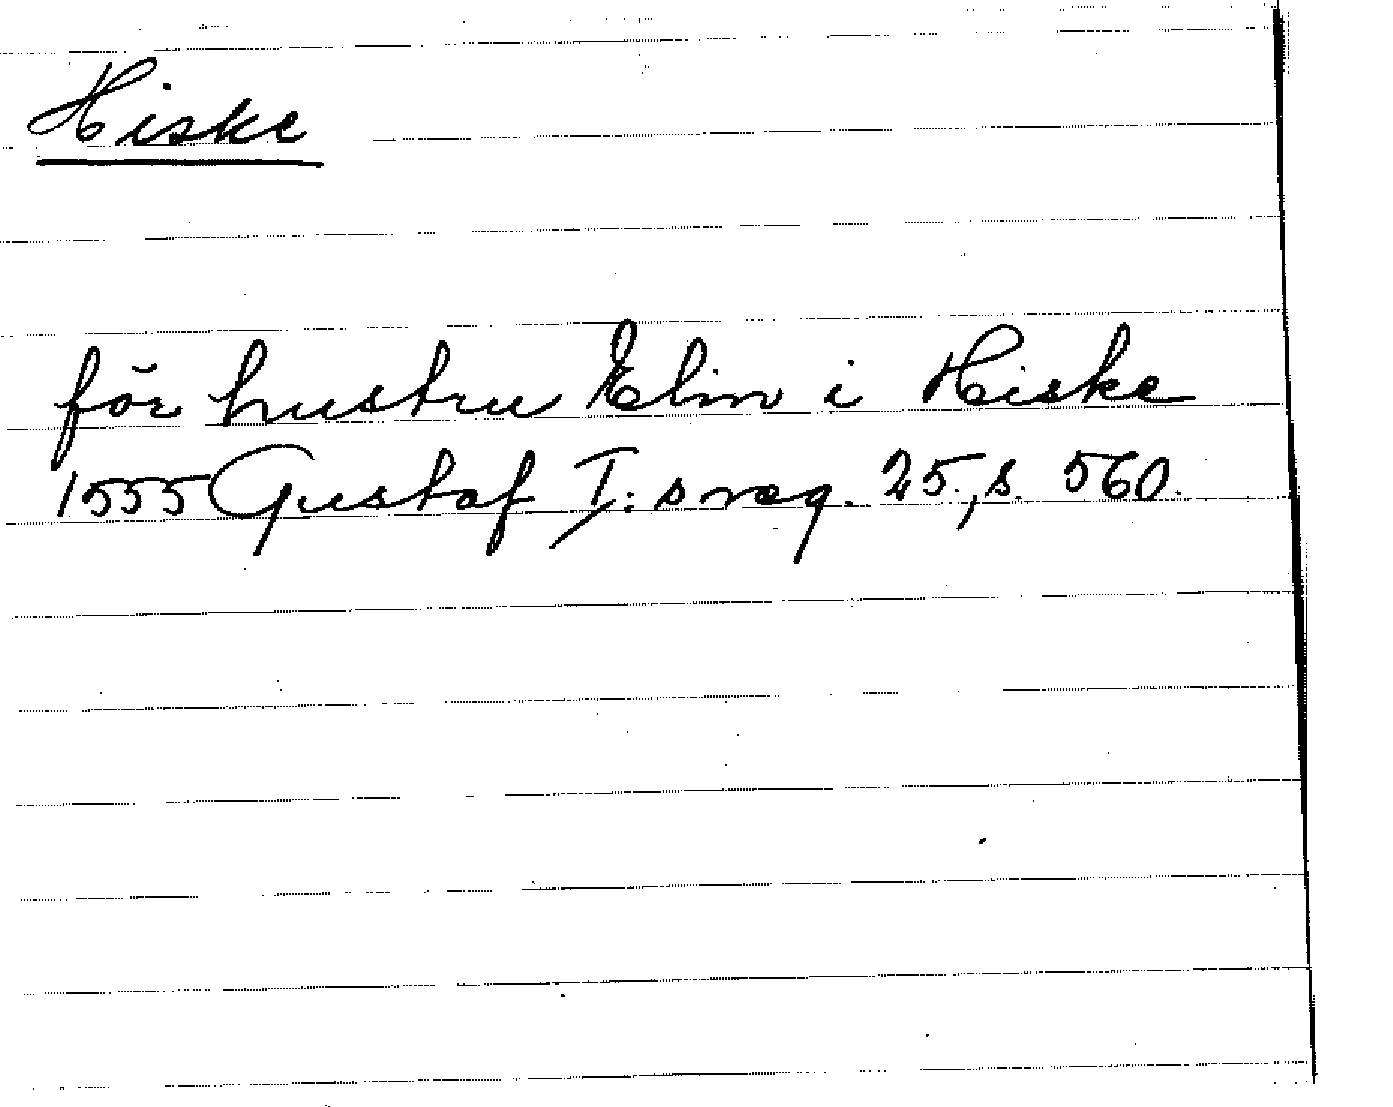 Hiske
för hustru Elin i Hiske
1555 Gustaf I:s reg. 25, s. 560.